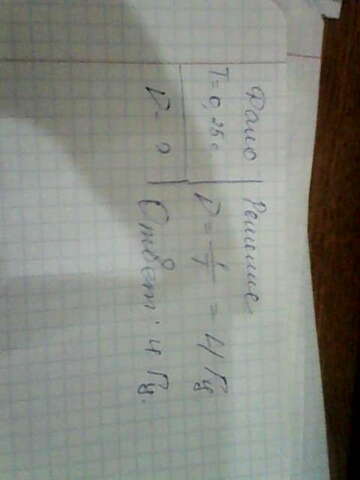 Дано Решение
T = 0,25 с. ν = 1/T = 4 Гц
ν - ?
Ответ: 4 Гц.